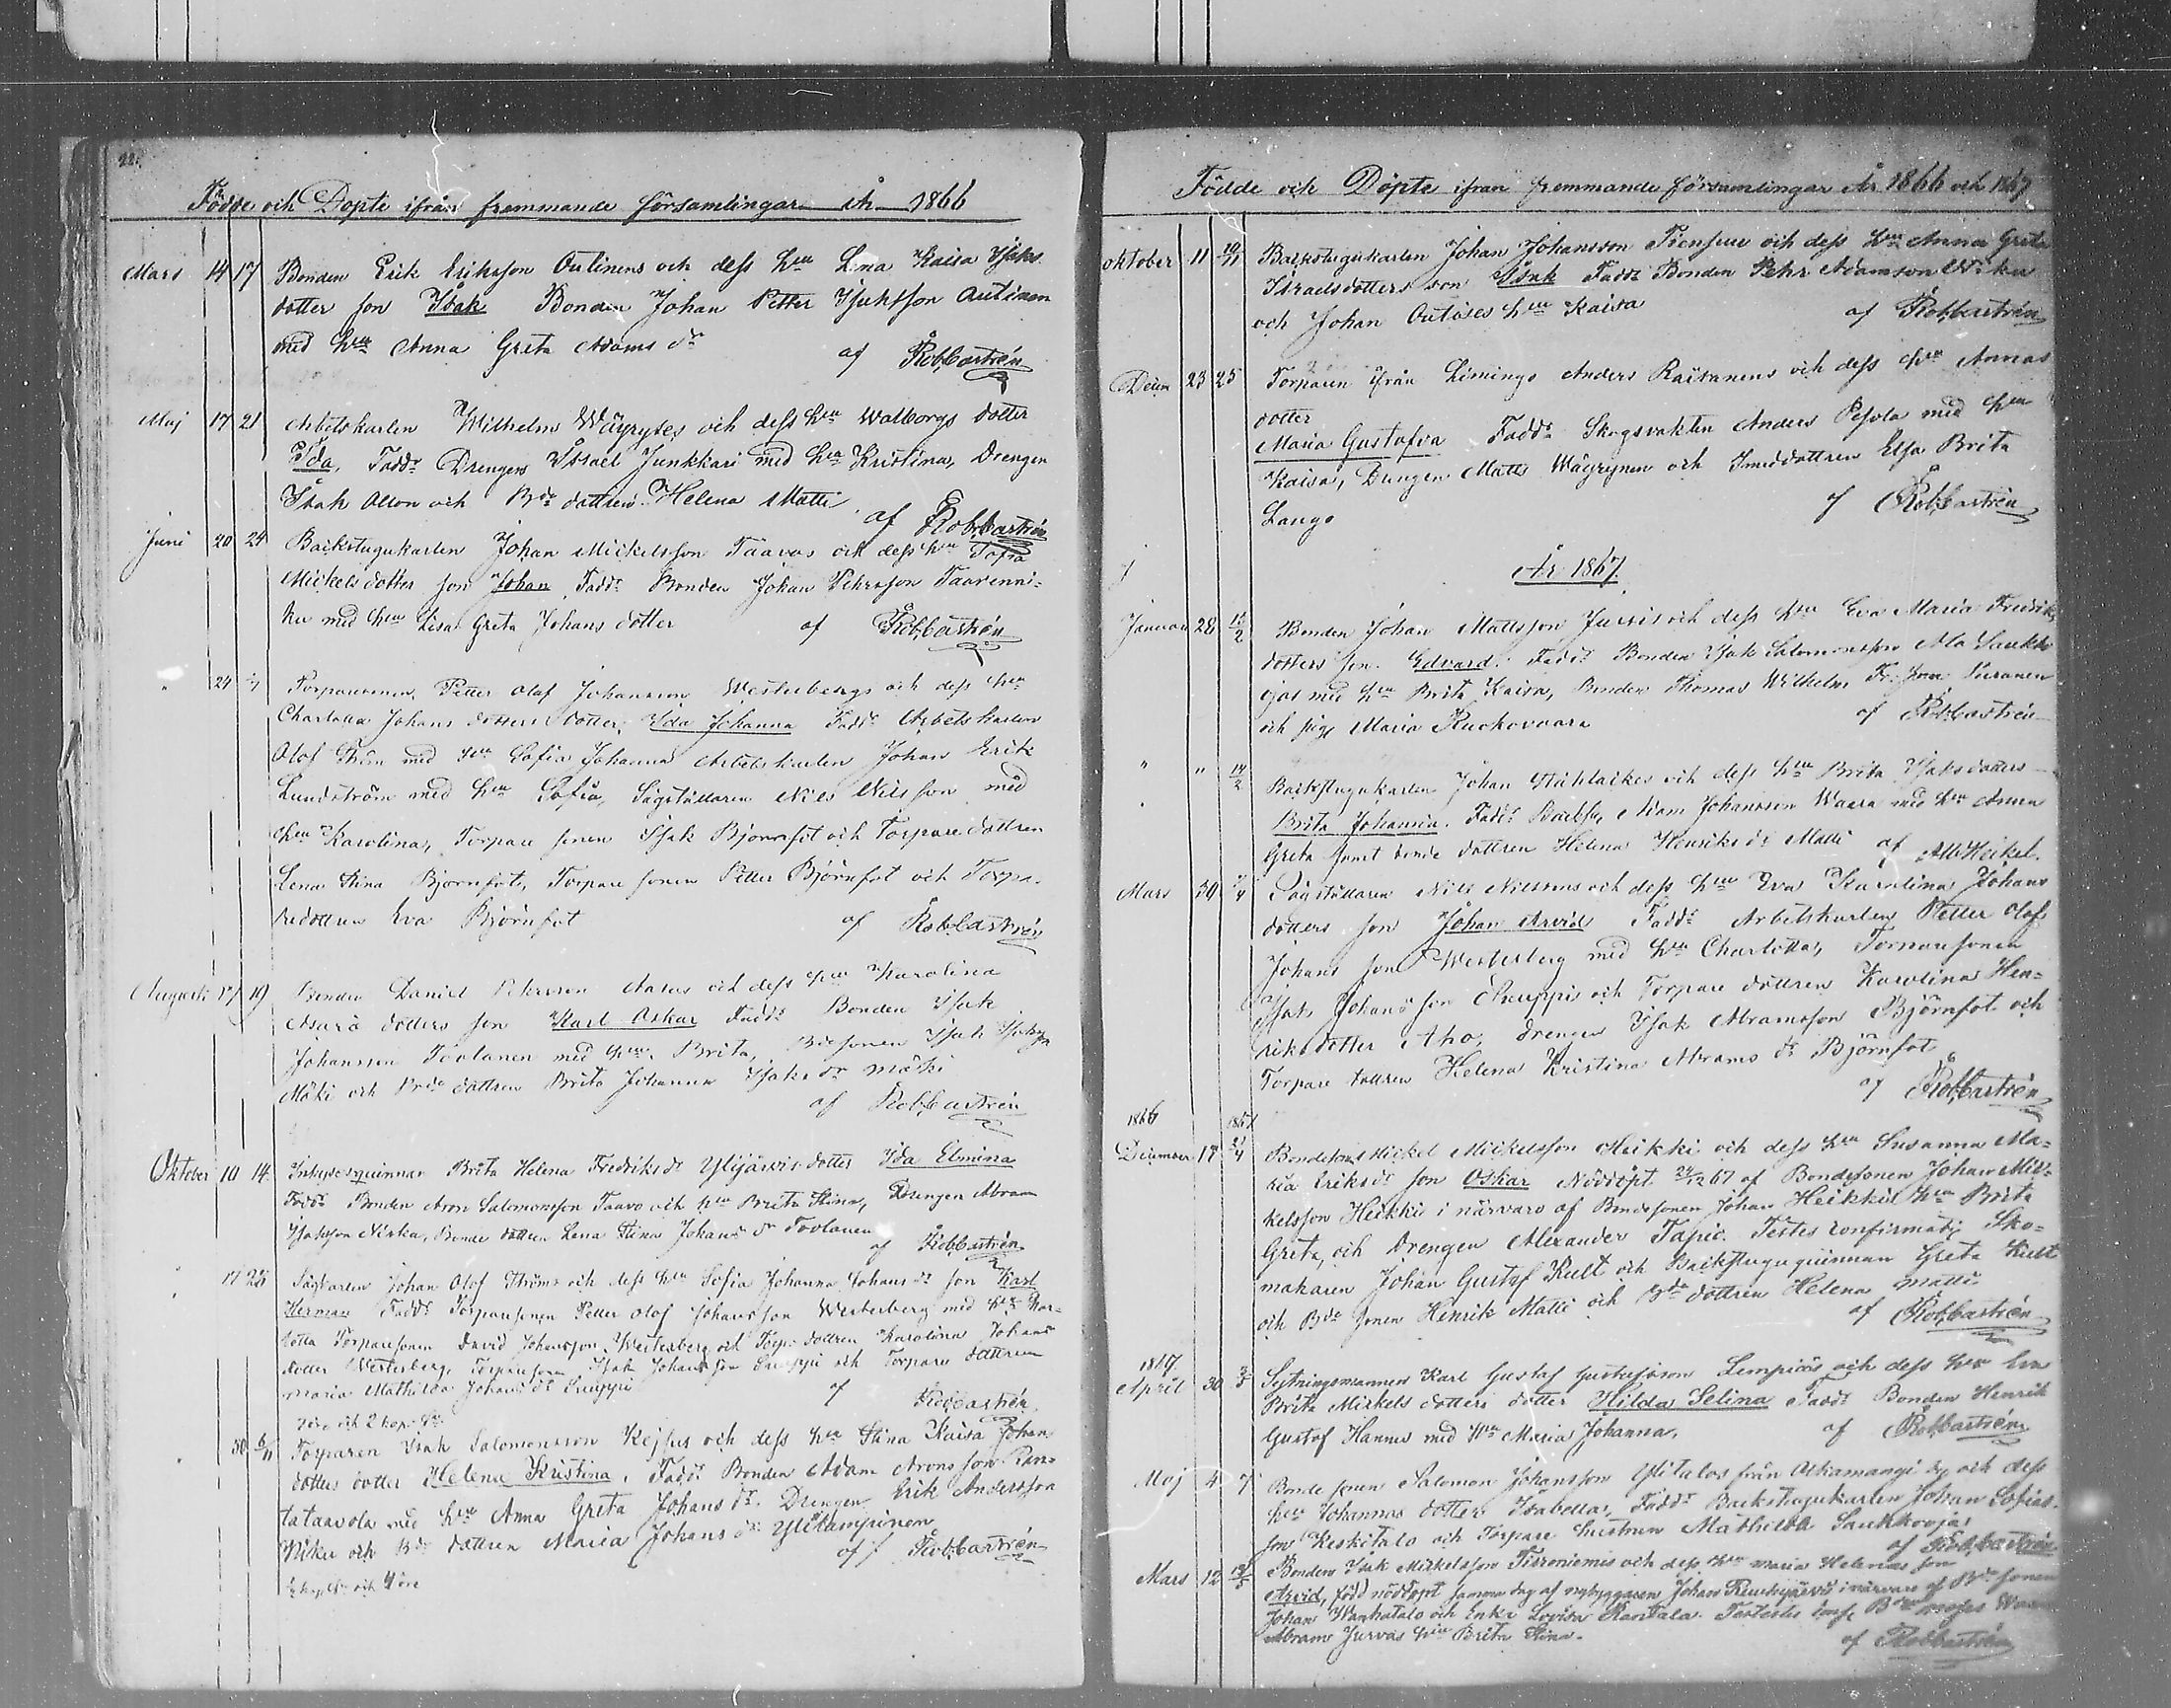 22.
Födde och Döpte ifrån fremmande församlingar år 1866
Mars 14 17 Bonden Erik Eriksson Outinens och dess hru Lena Kaisa Isaks
dotter son Isak Bonden Johan Petter Isaksson Autinen
med hru Anna Greta Adams dr
af Rob. Castrén
Maj 17 21 Arbetskarlen Wilhelm Wäyryses och dess hru Walborgs dotter
Ida, Faddr Drengen Israel Junkkari med hru Kristina, Drengen
Isak Olson och Bde dottren Helena Matti
af Rob. Castrén
Juni 20 24 Backstugukarlen Johan Mickelsson Taavos och dess hru Sofia
Mickels dotter son Johan, Faddr Bonden Johan Pehrsson Taavenni-
ku med hru Lisa Greta Johans dotter
af Rob. Castrén
" 24 Torparsonen Petter Olof Johansson Westerbergs och dess hru
Charlotta Johans dotters dotter, Ida Johanna Faddr Arbetskarlen
Olof Ström med hru Sofia Johanna Arbetskarlen Johan Erik
Lundström med hru Sofia, Sågställaren Nils Nilsson med
hru Karolina, Torpare sonen Isak Björnfot och Torpare dottren
Lena Stina Björnfot, Torpare sonen Petter Björnfot och Torpa-
redottren Eva Björnfot
af Rob. Castrén
Augusti 17 19 Bonden Daniel Pehrsson och dess hru Karolina
dotters son Karl Oskar Faddr Bonden Isak
Johansson Toolanen med hru Brita, Bdesonen Isak
Mäki och Bde dottren Brita Johanna Isaks dr Mäki
af Rob. Castrén
Oktober 10 14 Inhysesqvinnan Brita Helena Fredriks dr Ylijärvis dotter Ida Elmina
Faddr Bonden Aron Salomonsson Taavo och hru Brita Stina, Drengen Abram
Isaksson Niska, Bonde dottren Lena Stina Johans dr Toolanen
af Rob. Castrén
" 17 28 Sågkarlen Johan Olof Ströms och dess hru Sofia Johanna Johans dr son Karl
Herman Faddr Torparsonen Petter Olof Johansson Westerberg med hru Char-
lotta Torparesonen David Johansson Westerberg och Torp. dottren Karolina Johans
dotter Westerberg, Torparsonen Isak Johansson Pruuppi och Torpare dottren
Maria Mathilda Johans dr Pruuppi
af Rob. Castrén
och 2 kop.
" 30 6/11 Torparen Isak Salomonsson Kejsus och dess hru Stina Kaisa Johans
dotters dotter Helena Kristina. Faddr Bonden Adam Aronsson Ran-
tataavola med hru Anna Greta Johans dr. Drengen Erik Andersson
Niku och Bde dottren Maria Johans dr Ylikampinen
af Rob. Castrén
och 4 öre
Födde och Döpte ifrån fremmande församlingar År 1866 och 1867
Oktober 11 10/11 Backstugukarlen Johan Johansson Tiensuu och dess hru Anna Greta
Israelsdotters son Isak Faddr Bonden Pehr Adamsson Niku
och Johan Outises hru Kaisa
af Rob. Castrén
Decem 23 25 Torparen ifrån Limingo Anders Raisanens och dess hru Annas
dotter
Maria Gustafva Faddr Skogsvakten Anders Pesola med hru
Kaisa, Drengen Matts Wäyrynen och Smeddottren Elsa Brita
Lango
af Rob. Castrén
År 1867.
Januari 28 Bonden Johan Mattsson Juvvis och dess hru Eva Maria Fredriks
dotters son Edvard. Faddr Bonden Isak Salomonsson Ala Saukko
ojas med hru Brita Kaisa, Bonden Thomas Wilhelm Puranen
och pige Maria Ruokovaara
af Rob. Castrén
" " 14/2 Backstugukarlen Johan och dess hru Brita Isaksdotters
Brita Johanna. Faddr Adam Johansson Waara med hru Anna
Greta samt bonde dottren Helena Henriks dr Matti af Heikel.
Mars 30 Sågställaren Nils Nilssons och dess hru Eva Karolina Johans
dotters son Johan Arvid Faddr Arbetskarlen Petter Olof
Johans son Westerberg med hru Charlotta, Torparesonen
Isak Johans son Pruuppi och Torpare dottren Karolina Hen-
riksdotter Aho, Drengen Isak Abramsson Björnfot och
Torpare dottren Helena Kristina Abrams dr Björnfot
af Rob. Castrén
1866 1867
December 17 21/4 Bondeson Mickel Mickelsson Heikki och dess hru Susanna Ma-
ria Eriks dr son Oskar Nöddöpt 24/12 67 af Bondesonen Johan Mic-
kelsson Heikki i närvaro af Bondesonen Johan Heikkis hru Brita
Greta, och Drengen Alexander Tapio. Testes confirmati Sko-
makaren Johan Gustaf Kult och Backstuguqvinnan Greta Kult
och Bde sonen Henrik Matti och Bde dottren Helena Matti
af Rob. Castrén
1867.
April 30 Sytningsmannen Karl Gustaf Gustafsson Lempiäs och dess hru Eva
Brita Mickels dotters dotter Hilda Selina Faddr Bonden Henrik
Gustaf Hannu med hru Maria Johanna,
af Rob. Castrén
Maj 4 7 Bonde sonen Salomon Johansson Ylitalos från Alkamangi by och dess
hru Johannas dotter Isabella, Faddr Backstugukarlen Johan Sofias
son Keskitalo och Torpare hustrun Mathilda Saukkoojas
af Rob. Castrén
Mars 12 Bonden Isak Mickelsson Tisroniemis och dess hru Maria Helenas son
Arvid, född nöddöpt samma dag af nybyggaren Johan i närvaro af Bde sonen
Johan Wanhatalo och Enka Lovisa Rantala.
Abram Jurvas hru Brita Stina.
af Rob. Castrén